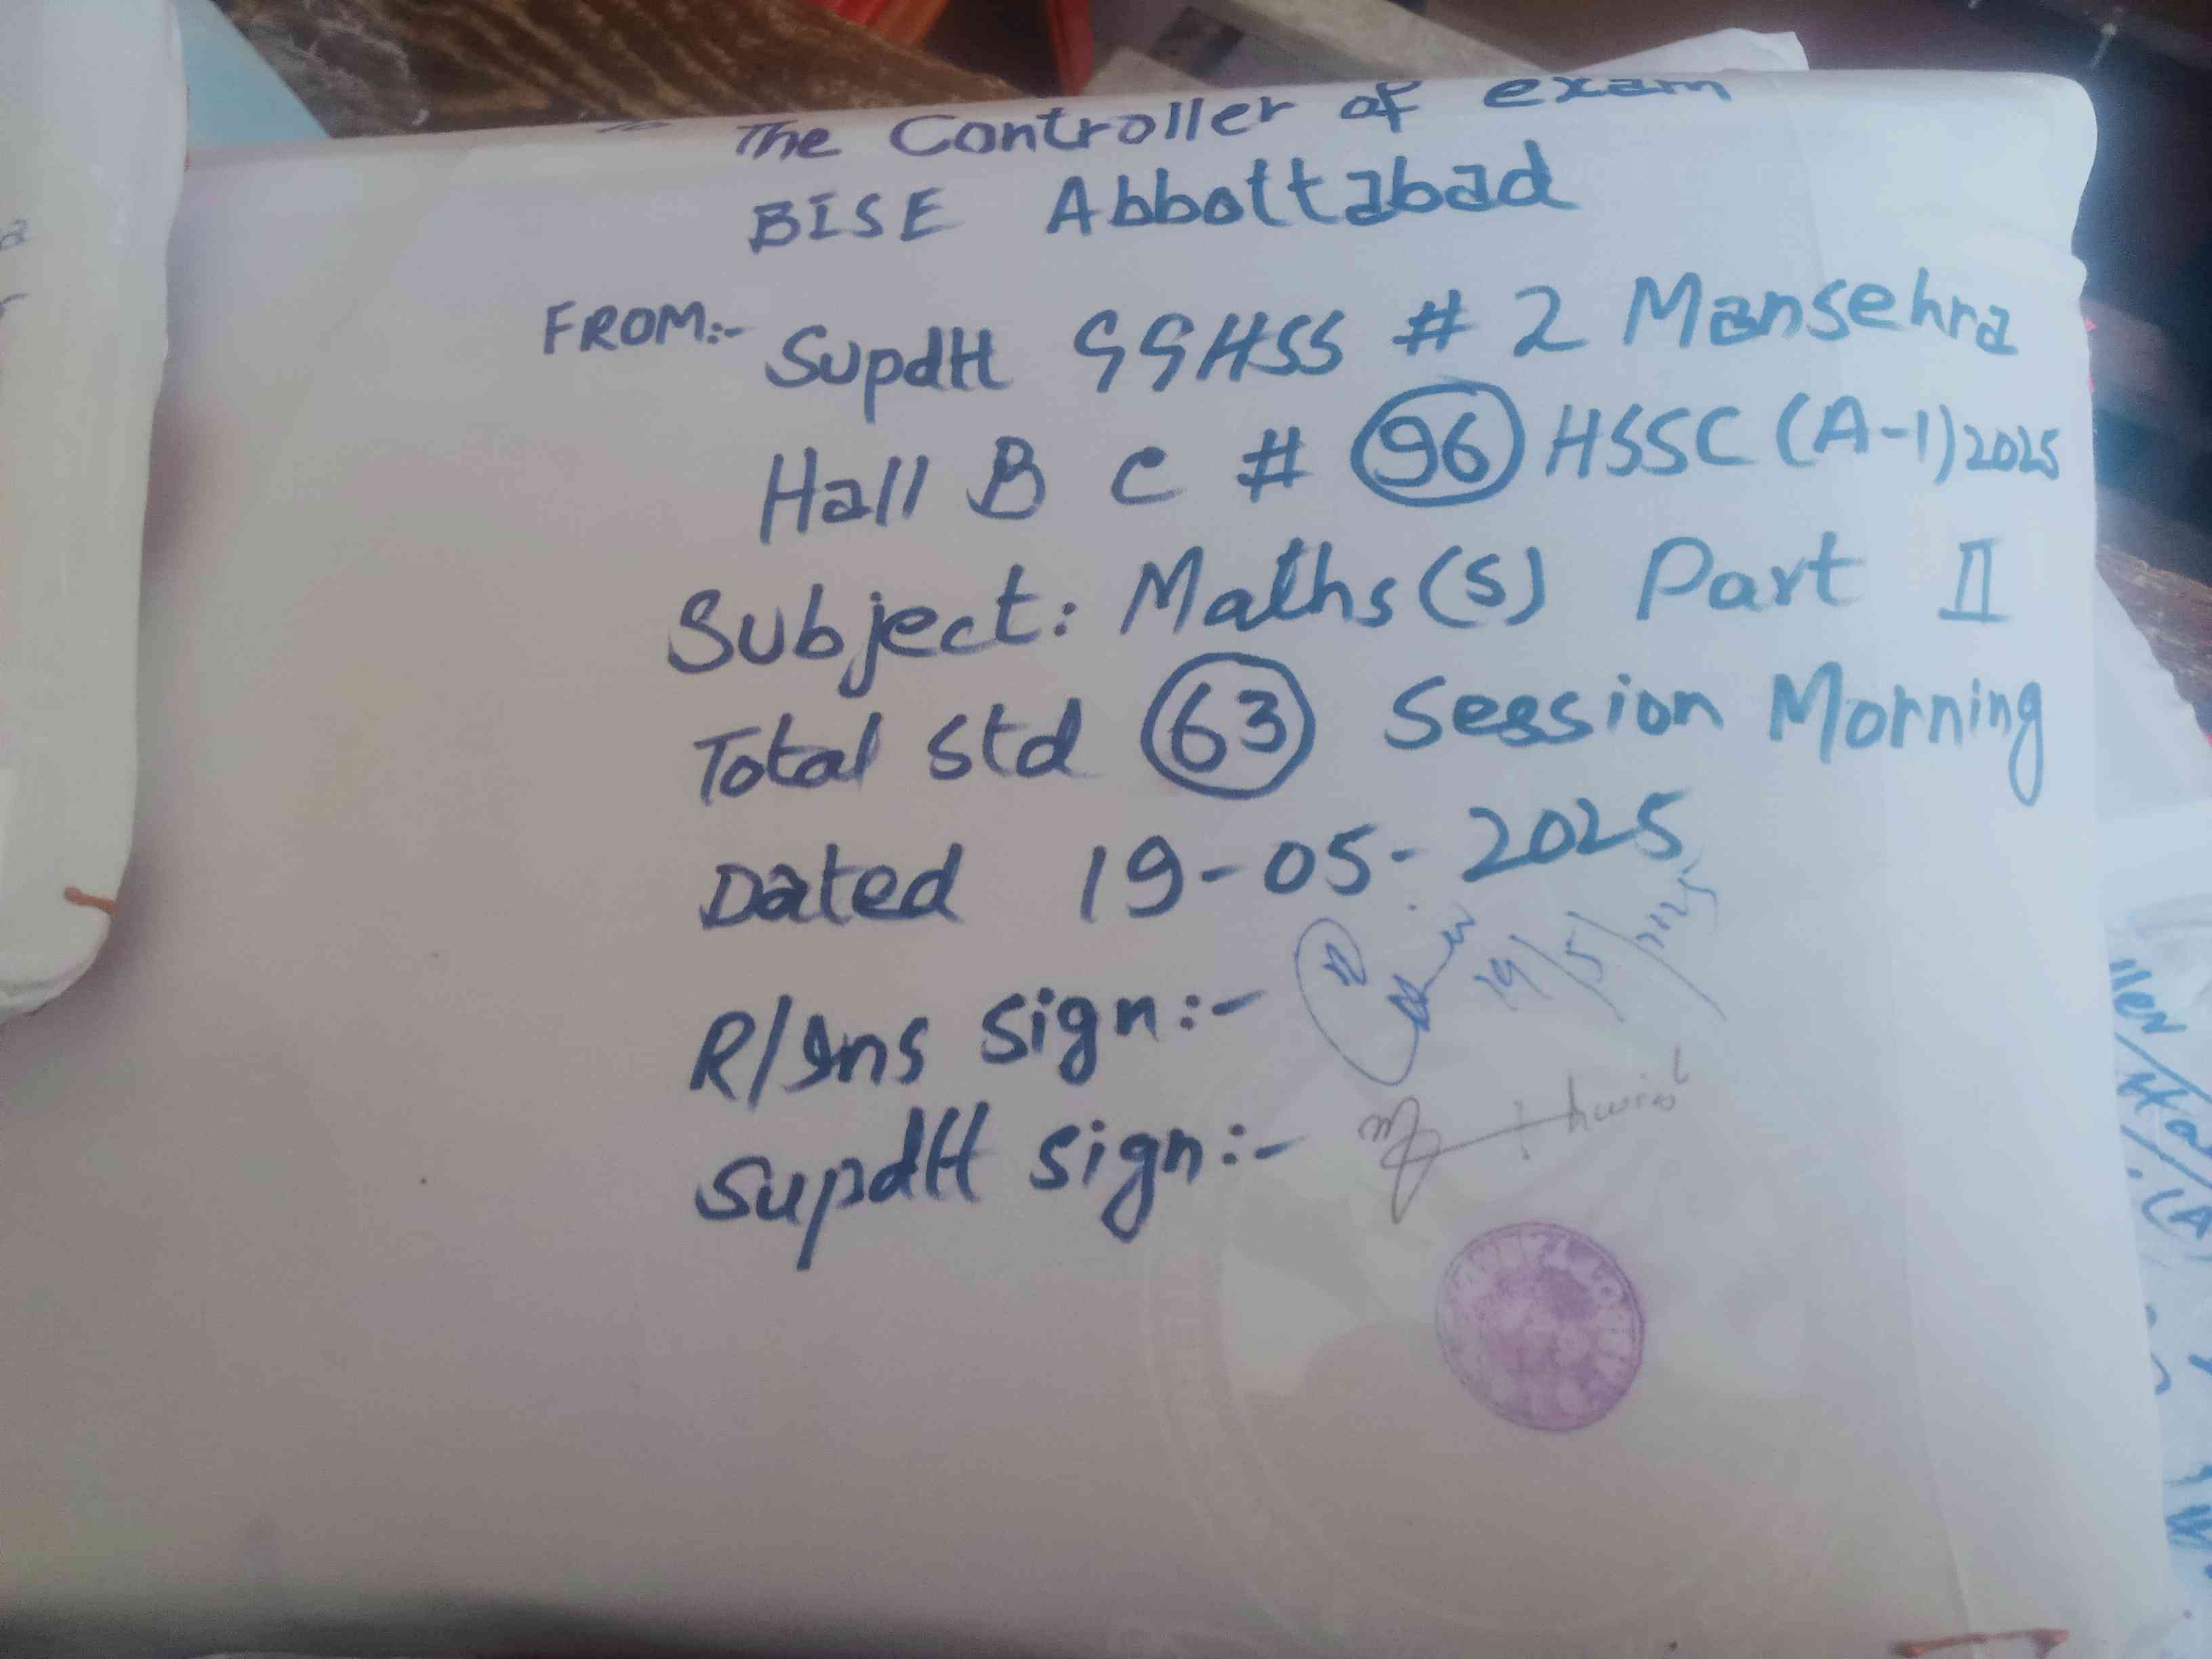 The Controller of exam
BISE Abbottabad
FROM:- Supdtt GGHSS # 2 Mansehra
Hall B C # 96 HSSC (A-1) 2025
Subject: Maths(s) Part II
Total std 63 Session Morning
Dated 19-05-2025
R/Ins sign:-
19/5/2025
Supdtt sign:-